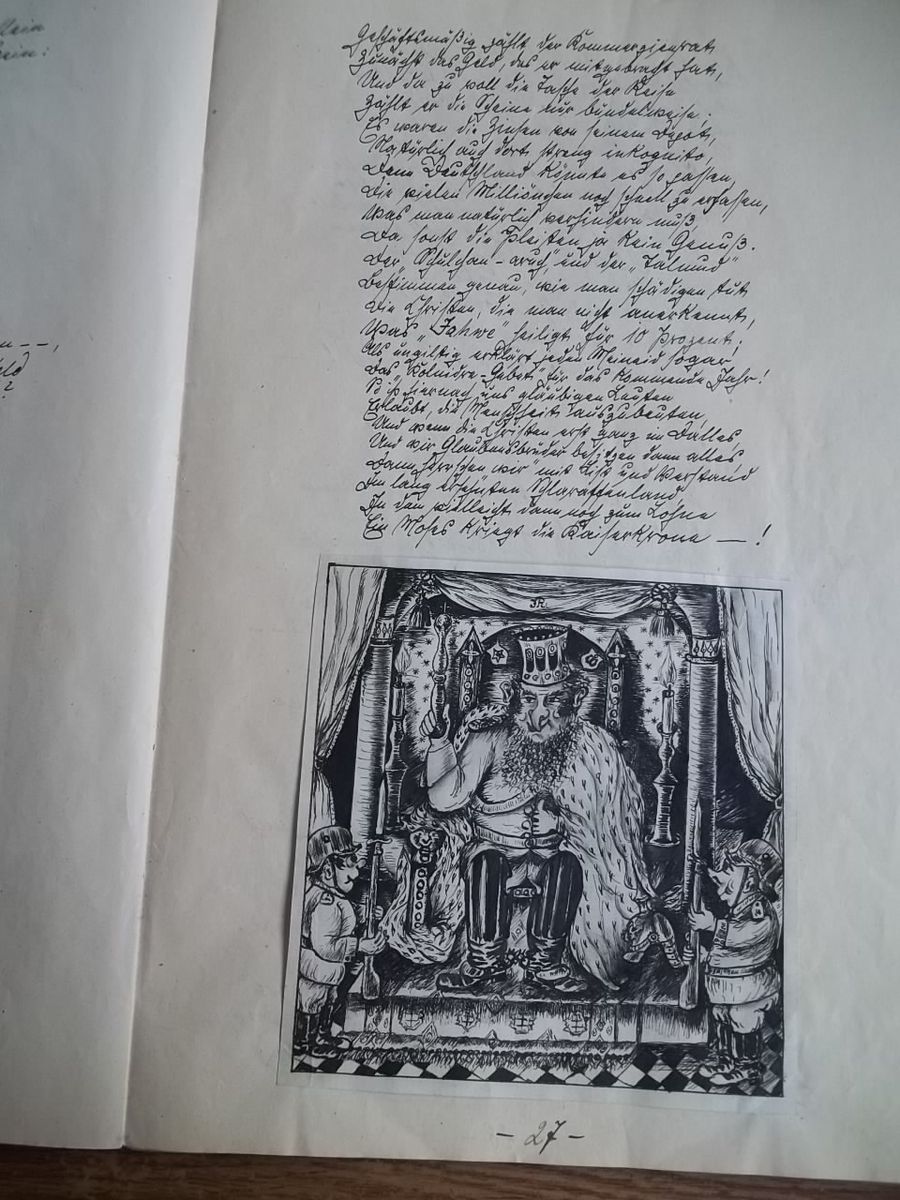 ein:
n – –,
eld
?
Geschäftsmäßig zählt der Kommerzienrat
Zunächst das Geld, das er mitgebracht hat,
Und da zu voll die Tasche der Reise
Zählt er die Scheine nur bündelweise;
Es waren die Zinsen von seinem Depot,
Natürlich auch dort streng inkognito,
Denn Deutschland könnte es so passen,
Die vielen Milliönchen noch schnell zu erfassen,
Was man natürlich verhindern muß,
Da sonst die Pleiten ja kein Genuß.
Der „Schulchan-aruch" und der „Talmud"
Bestimmen genau, wie man schädigen tut
Die Christen, die man nicht anerkennt,
Was „Jahwe" heiligt für 10 Prozent.
Als ungiltig erklärt jeden Meineid sogar
Das „Kolnidre-Gebet" für das kommende Jahr!
So ist hiernach uns gläubigen Leuten
Erlaubt, die Menschheit auszubeuten,
Und wenn die Christen erst ganz in Dalles,
Und wir Glaubensbrüder besitzen dann alles,
Dann herrschen wir mit List und Verstand
Im lang ersehnten Schlaraffenland,
In dem vielleicht dann noch zum Lohne
Ein Moses kriegt die Kaiserkrone — !
JR
– 27 –